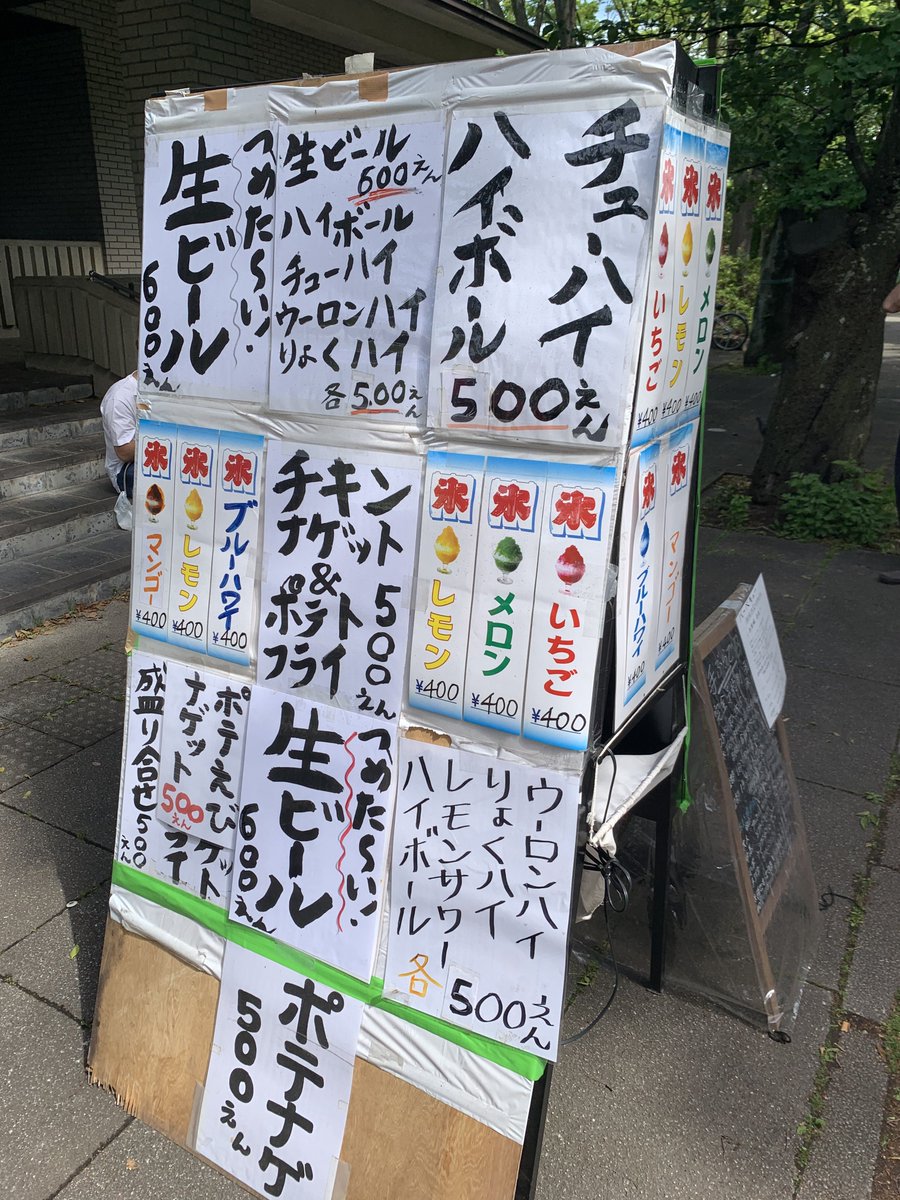 つめた〜い!
生ビール
600えん
生ビール
600えん
ハイボール
チューハイ
ウーロンハイ
りょくハイ
各500えん
チューハイ
ハイボール
500えん
氷
いちご
¥400
氷
レモン
¥400
氷
メロン
¥400
氷
マンゴー
¥400
氷
レモン
¥400
氷
ブルーハワイ
¥400
チキン
ナゲット
&
ポテト
フライ
500えん
氷
レモン
¥400
氷
メロン
¥400
氷
いちご
¥400
氷
ブルーハワイ
氷
マンゴー
ポテえび
ナゲット
500えん
盛り合せ500えん
つめた〜い!
生ビール
600えん
ウーロンハイ
りょくハイ
レモンサワー
ハイボール
各500えん
ポテナゲ
500えん